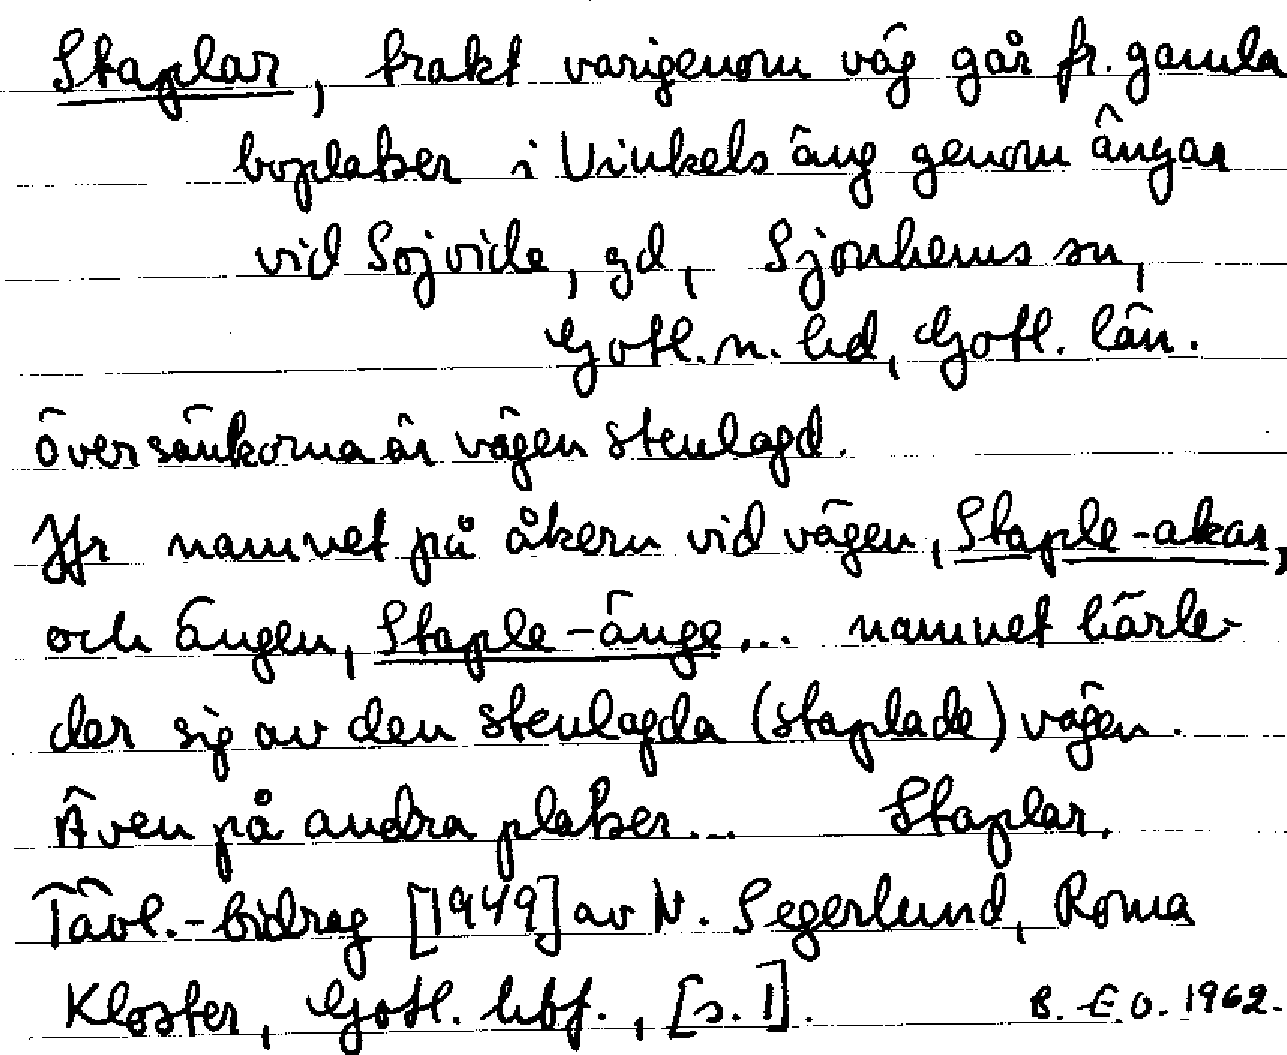 Staplar, trakt varigenom väg går fr. gamla
boplatser i Vinkels äng genom ängar
vid Sojvide, gd, Sjonhems sn,
Gotl. n. hd, Gotl. län.
över sänkorna är vägen stenlagd.
Jfr namnet på åkern vid vägen, Staple-akar,
och ängen, Staple-änge... namnet härle-
der sig av den stenlagda (staplade) vägen.
Även på andra platser... Staplar.
Tävl.-bidrag [1949] av N. Segerlund, Roma
Kloster, Gotl. hbf., [s. 1]. B. E. O. 1962.